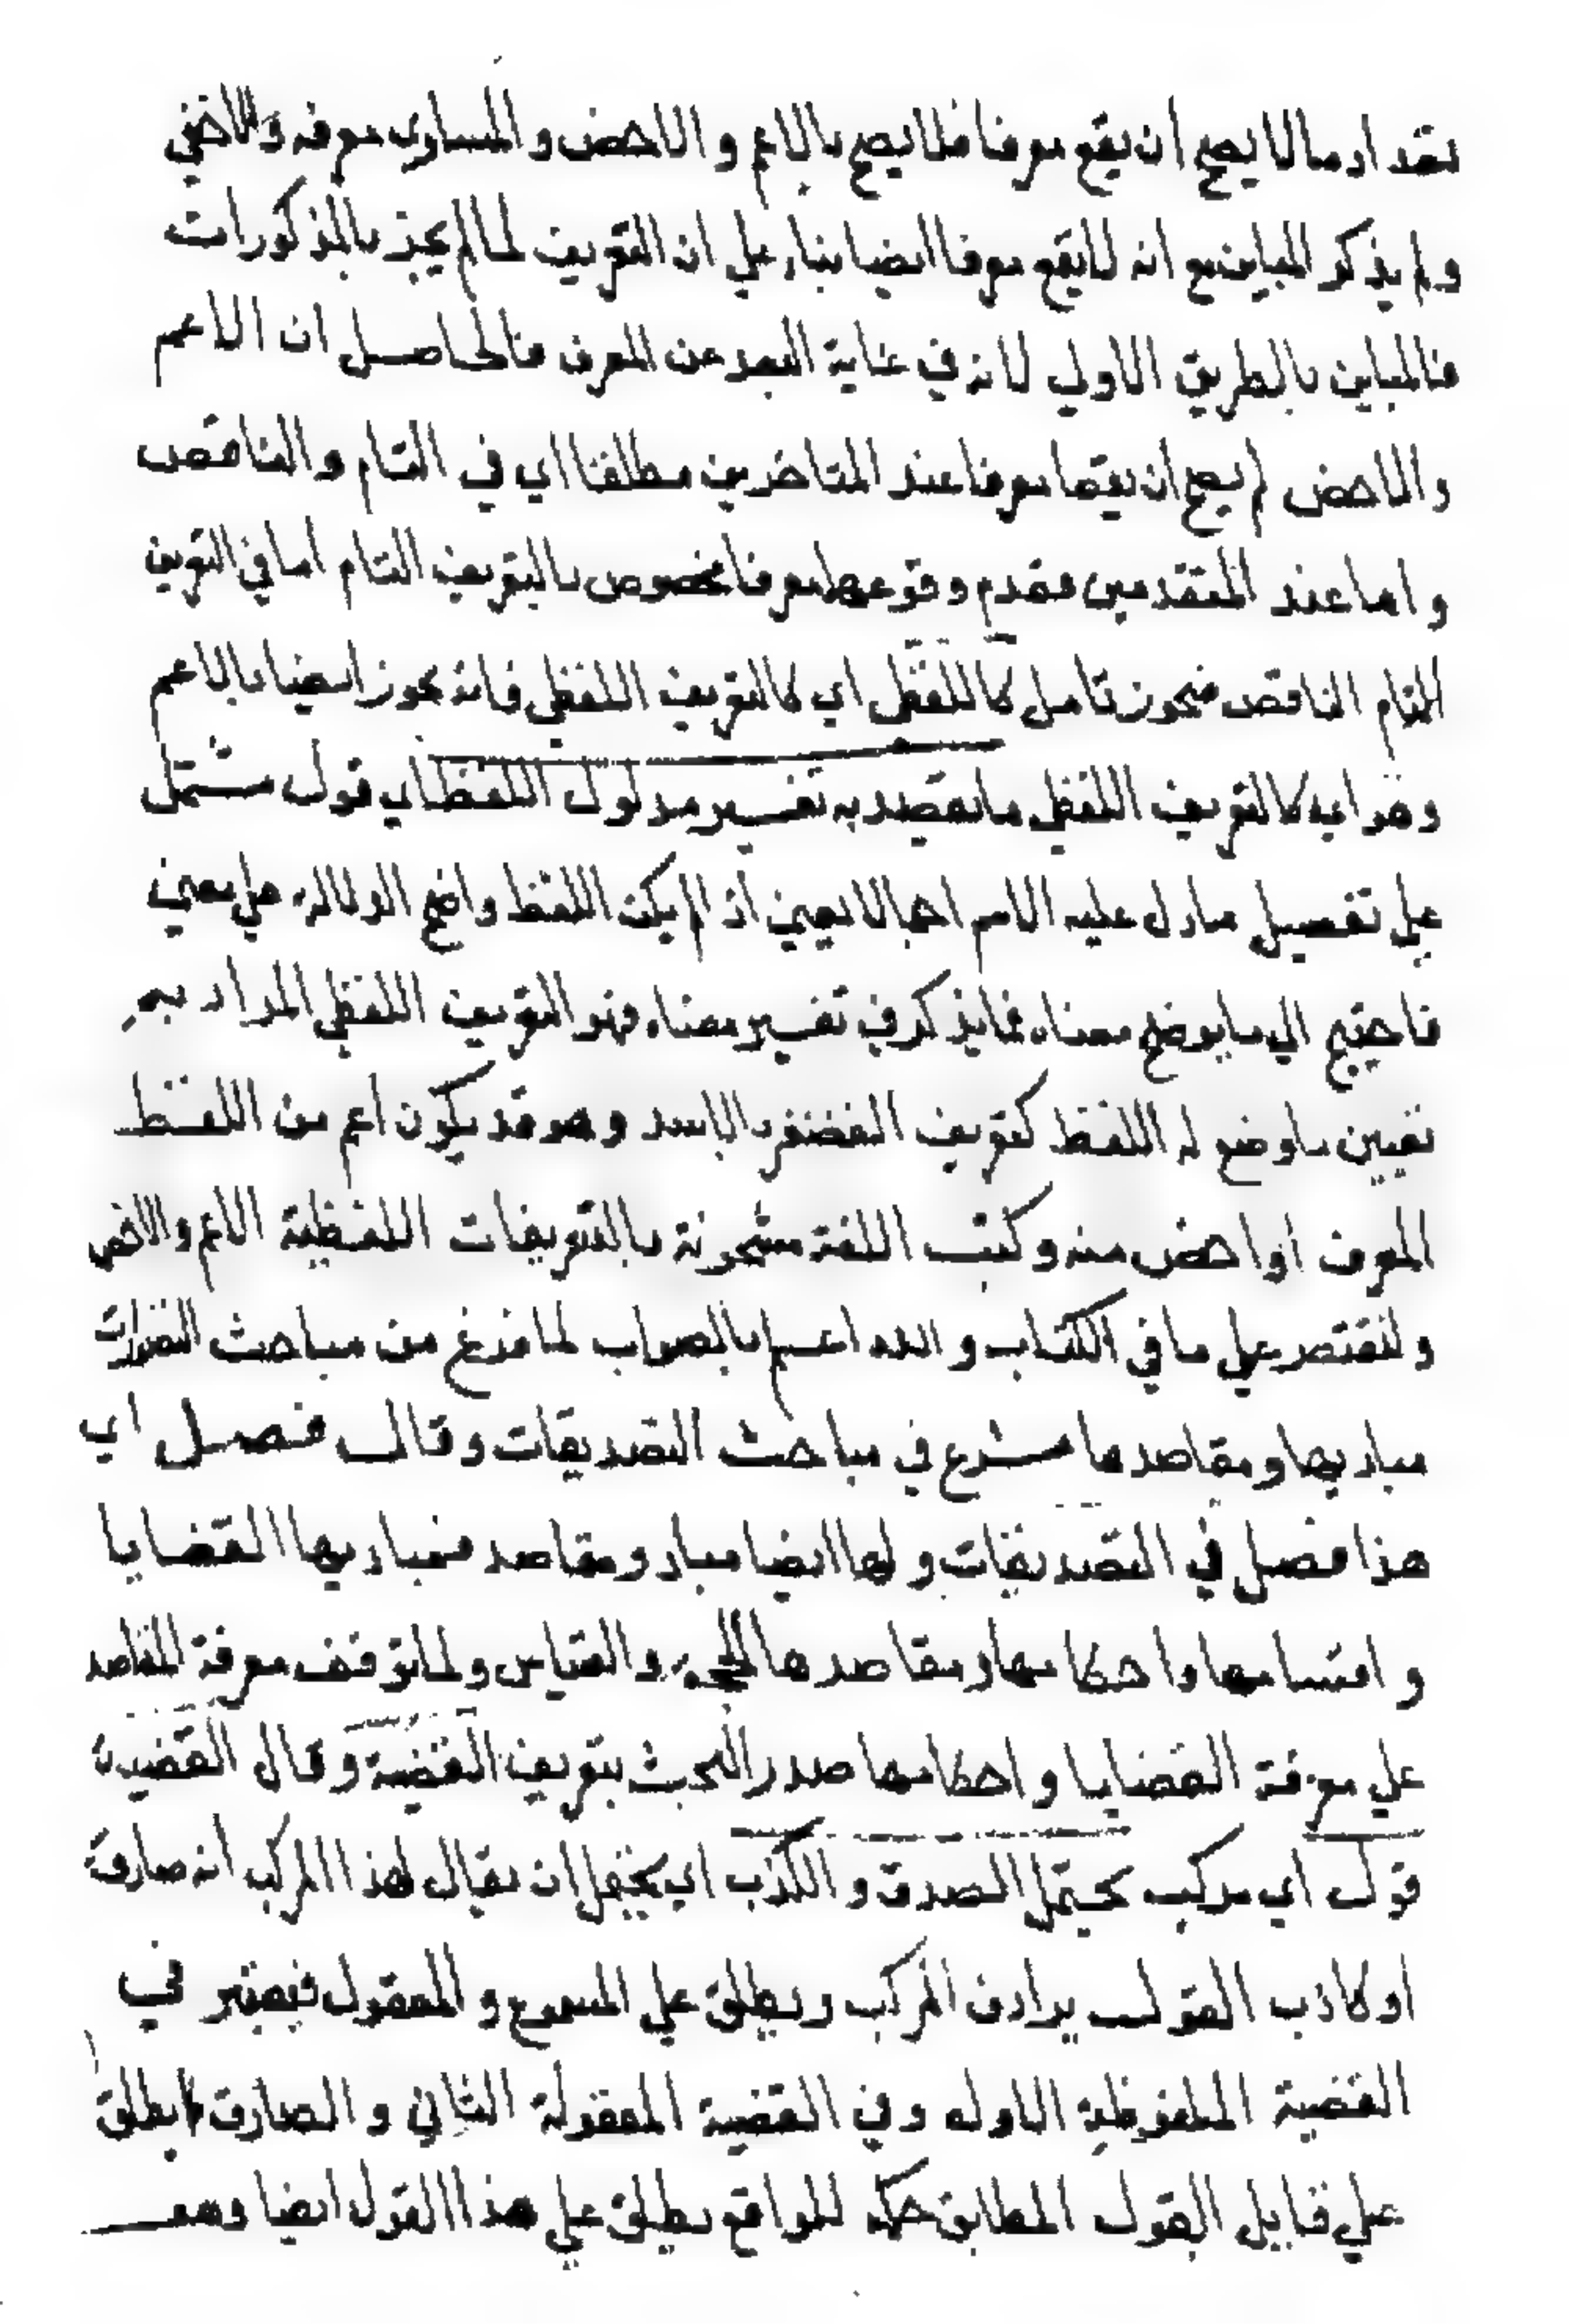 تعداد ما لا يصح ان يقع معرفا فلا يصح بالاعم والاخص والمساوي معرفة والاخفي
ولم يذكر المباين مع انه لا يقع معرفا ايضا بناء علي ان التعريف لما لم يجز بالمذكورات
فالمباين بالطريق الاولي لانه في غاية البعد عن المعرف فالحاصل ان الاعم
والاخص لم يصح ان يقعا معرفا عند المتاخرين مطلقا اي في التام والناقص
واما عند المتقدمين فعدم وقوعهما معرفا مخصوص بالتعريف التام اما في التعريف
التام الناقص فيجوز تامل كاللفظي اي كالتعريف اللفظي فانه يجوز ايضا بالاعم
وهو اي كالتعريف اللفظي ما يقصد به تفسير مدلول اللفظ اي قول مشتمل
علي تفصيل ما دل عليه الاسم اجمالا يعني اذا لم يكن اللفظ واضح الدلالة علي معني
فاحتيج الي ما يوضح معناه فما يذكر في تفسير معناه فهو التعريف اللفظي المراد به
تعيين ما وضع له اللفظ كتعريف الغضنفر بالاسد وهو قد يكون اعم من اللفظ
المعرف او اخص منه وكتب اللغة مشحونة بالتعريفات اللفظية الاعم والاخص
ولنقتصر علي ما في الكتاب والله اعلم بالصواب لما فرغ من مباحث التصورات
مباديها ومقاصدها شرع في مباحث التصديقات وقال فصل اي
هذا فصل في التصديقات ولها ايضا مباد ومقاصد فمباديها القضايا
واقسامها واحكامها ومقاصدها الحجة والقياس ولما توقف معرفة المقاصد
علي معرفة القضايا واحكامها صدر البحث بتعريف القضية وقال القضية
قول اي مركب يحتمل الصدق والكذب اي يحتمل ان يقال لهذا المركب انه صادق
او كاذب القول يرادف المركب ويطلق علي المسموع والمعقول فيعتبر في
القضية الملفوظة الاوله وفي القضية المعقولة الثاني والصادق يطلق
علي قايل القول المطابق حكمه للواقع يطلق علي هذا القول ايضا وهو